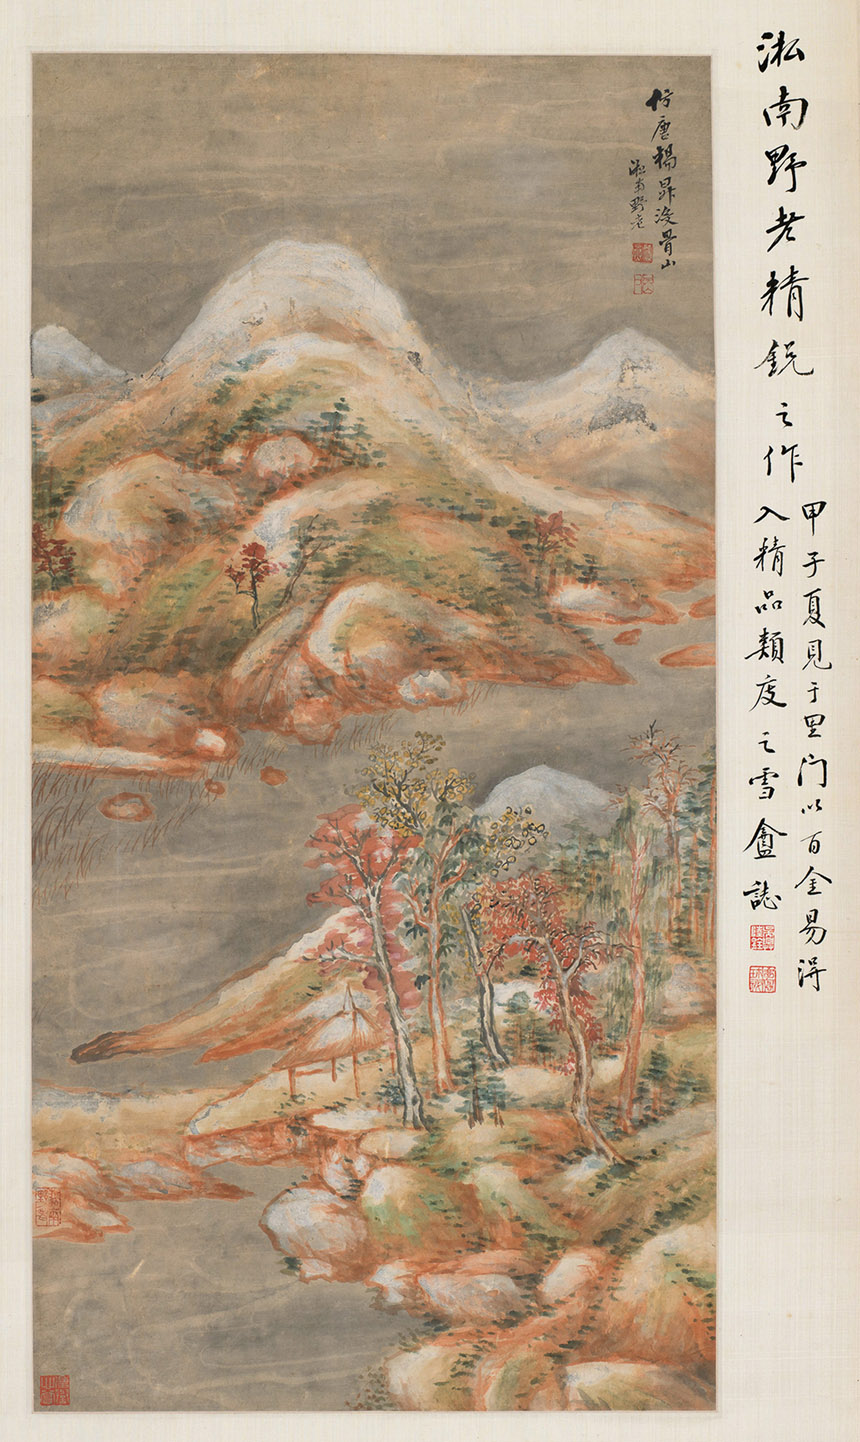 淞南野老精銳之作
甲子夏見于里門以百金易得
入精品類庋之雪盦誌
仿唐楊昇没骨山
淞南野老